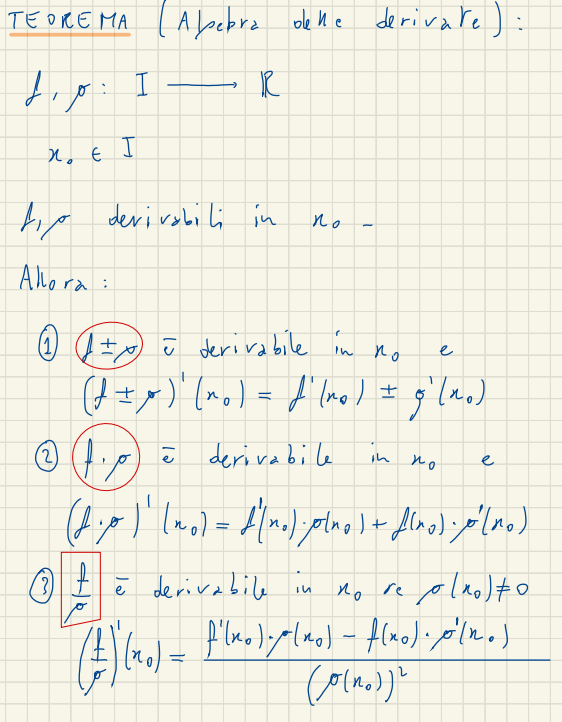 TEOREMA (Algebra delle derivate):
f, g: I ⟶ ℝ
x₀ ∈ I
f, g derivabili in x₀ -
Allora:
① f ± g è derivabile in x₀ e
(f ± g)'(x₀) = f'(x₀) ± g'(x₀)
② f · g è derivabile in x₀ e
(f · g)'(x₀) = f'(x₀) · g(x₀) + f(x₀) · g'(x₀)
③ f/g è derivabile in x₀ se g(x₀) ≠ 0
(f/g)'(x₀) = (f'(x₀) · g(x₀) − f(x₀) · g'(x₀)) / (g(x₀))²